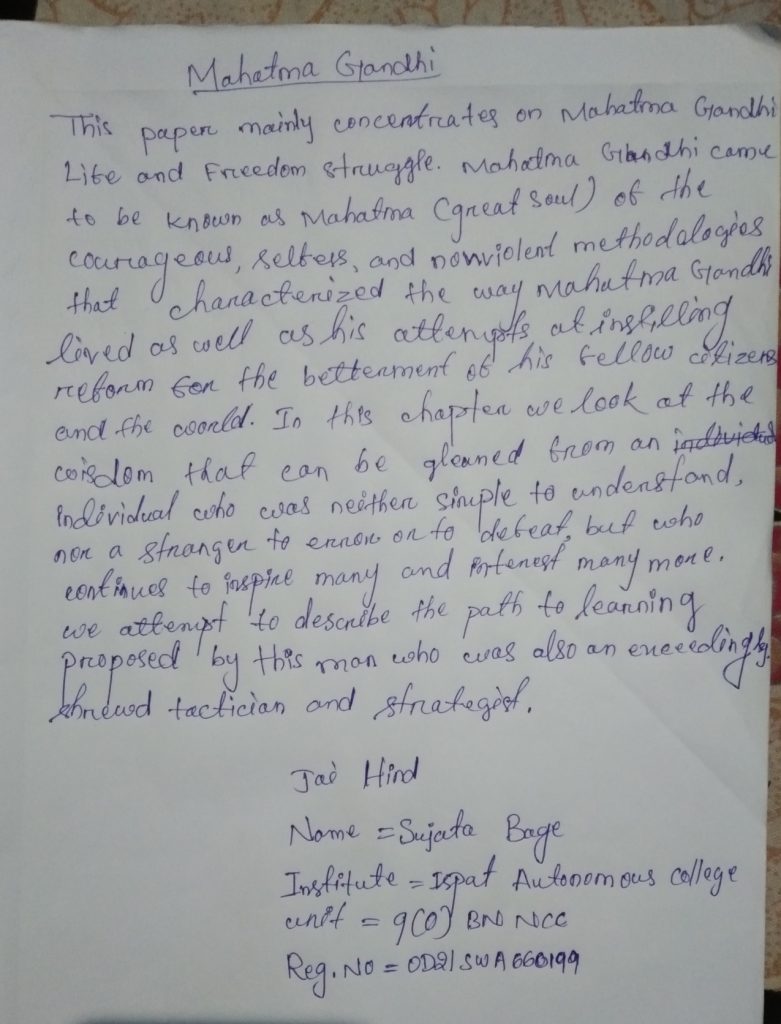 Mahatma Gandhi
This paper mainly concentrates on Mahatma Gandhi
Life and Freedom struggle. Mahatma Gandhi came
to be known as Mahatma (great soul) of the
courageous, selfess, and nonviolent methodologies
that characterized the way Mahatma Gandhi
lived as well as his attempts at instilling
reform for the betterment of his fellow citizens
and the world. In this chapter we look at the
wisdom that can be gleaned from an individual
individual who was neither simple to understand,
nor a stranger to error or to defeat, but who
continues to inspire many and interest many more.
we attempt to describe the path to learning
proposed by this man who was also an exceedingly
shrewd tactician and strategist.
Jai Hind
Name = Sujata Bage
Institute = Ispat Autonomous college
unit = 9(O) BN NCC
Reg. No = OD21SWA660199